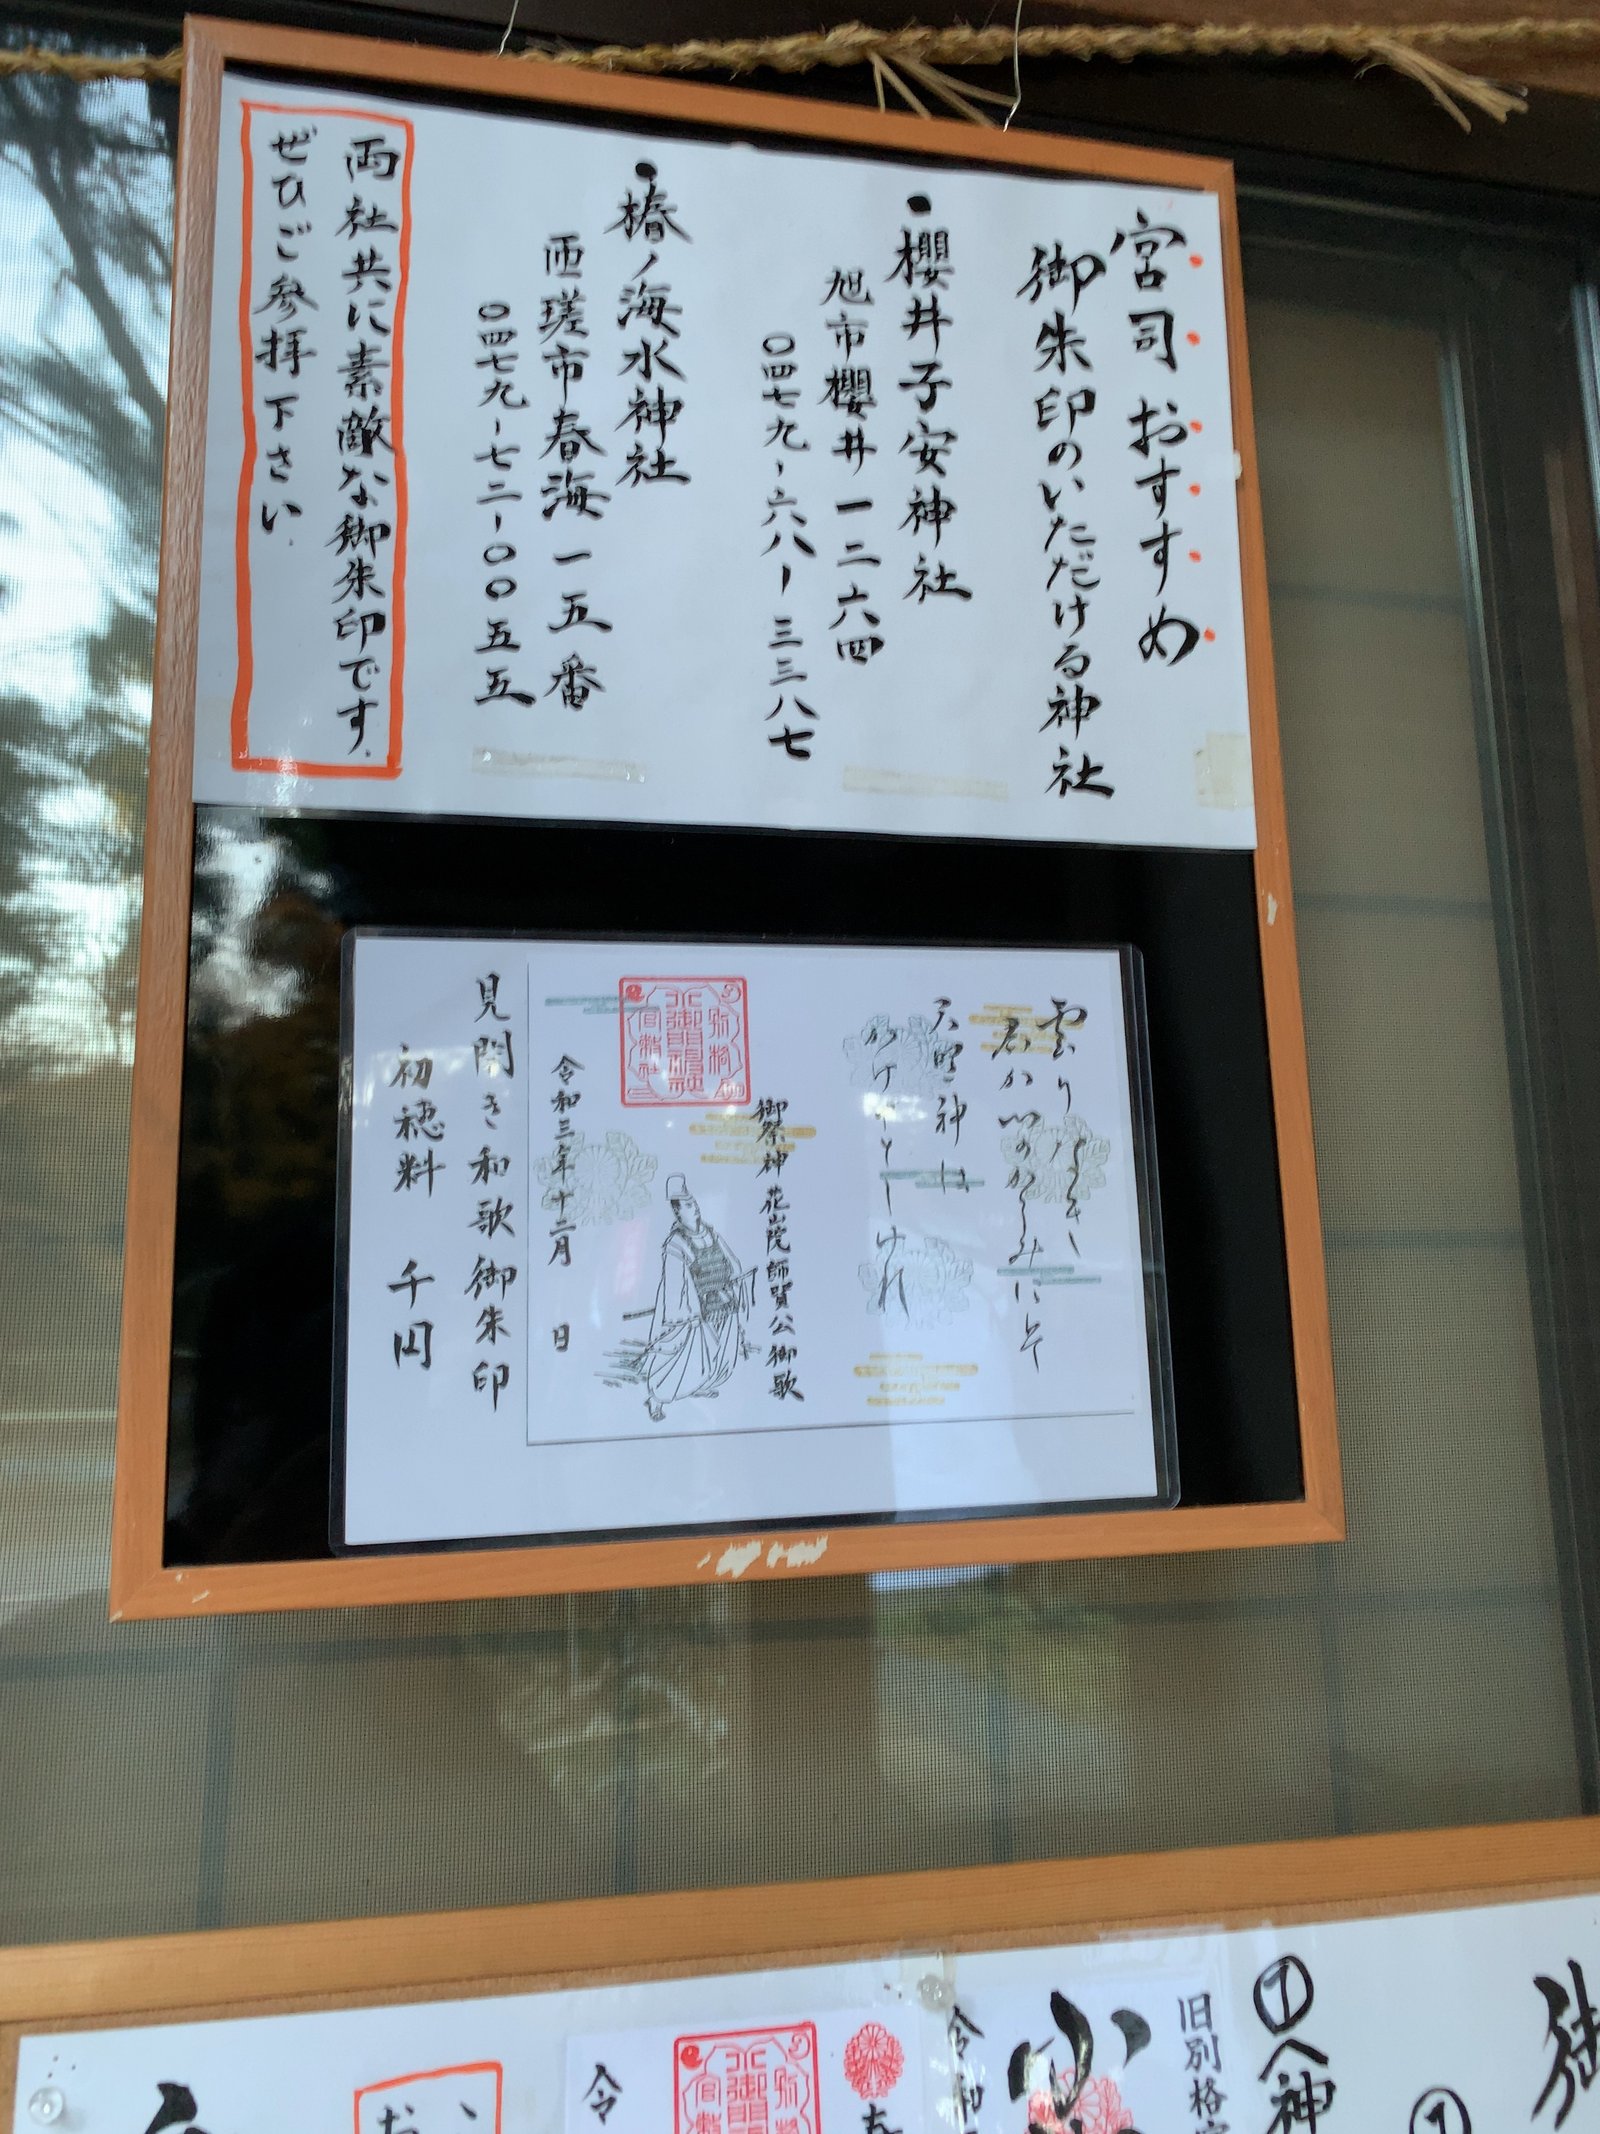 宮司おすすめ
御朱印のいただける神社
・櫻井子安神社
旭市櫻井一二六四
〇四七九-六八-三三八七
・椿ノ海水神社
匝瑳市春海一五番
〇四七九-七二-〇〇五五
両社共に素敵な御朱印です.
ぜひご参拝下さい.
天照神は
御祭神 花山院師賢公御歌
別格
小御門神社
官幣社
令和三年十二月 日
見開き和歌御朱印
初穂料 千円
御
①
神
旧別格官
小
令和
小御門
別
官幣
令
お